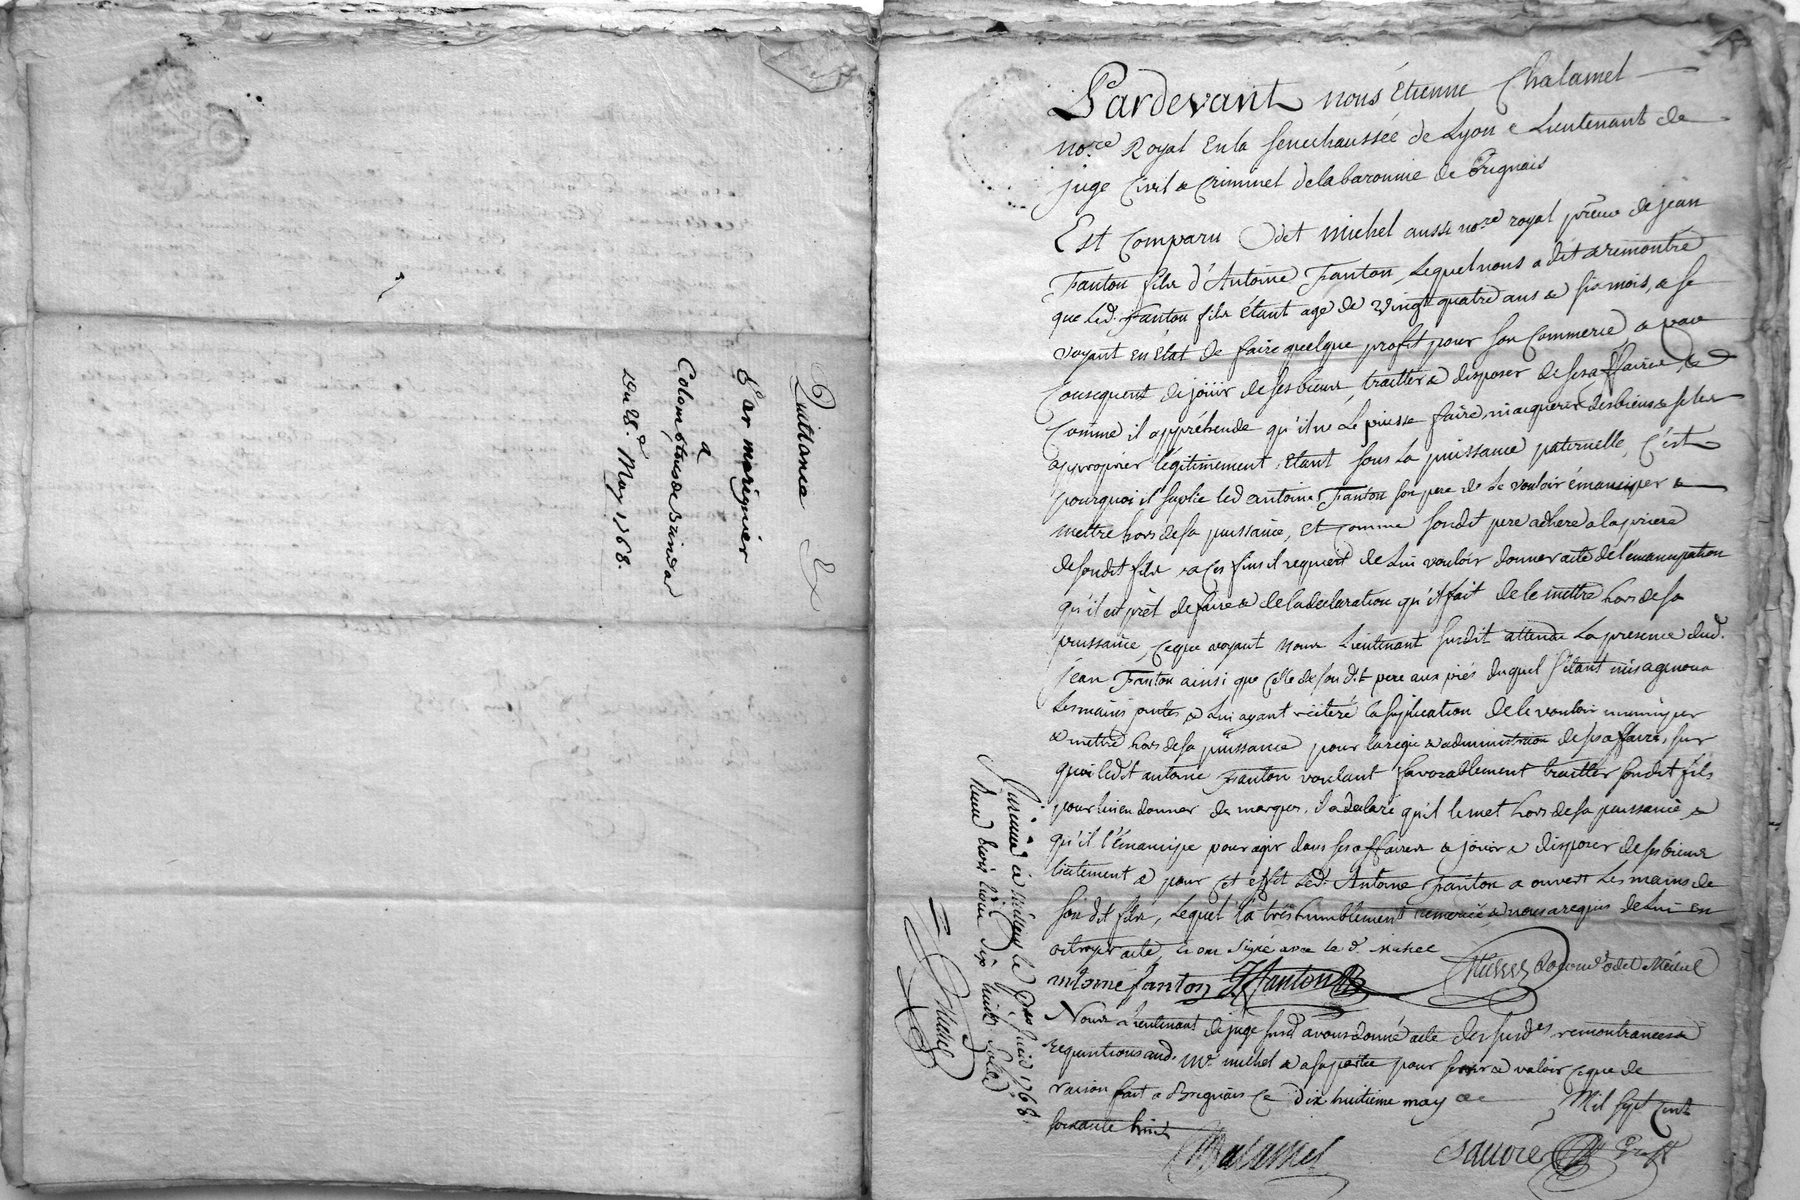 Quittance &
Par marignier
a
Colomb fous de Brindas
Du 28.e May 1768.
Pardevant nous Etienne Chalamel
no.re Royal en la senechaussée de Lyon & Lieutenant de
juge Civil & Criminel de la baronnie de Brignais
Est comparu Odet Michel aussi no.re royal preur de jean
Fanton fils d'Antoine Fanton, Lequel nous a dit & remontré
que led. Fanton fils étant agé de vingt quatre ans & six mois, & se
voyant en état de faire quelque profit pour son Commerce & par
consequent de joüir de ses biens, traitter & disposer de ses affaires, &
comme il appréhende qu'il ne Le puisse faire, n'acquerir des biens & se les
approprier légitimement, étant sous La puissance paternelle, C'est
pourquoi il suplie led antoine Fanton son pere de Le vouloir émanciper &
mettre hors de sa puissance, et comme sondit pere adhere a la priere
de sondit fils, a ces fins il requiert de Lui vouloir donner acte de l'émancipation
qu'il est prêt de faire & de la declaration qu'il fait de le mettre hors de sa
puissance, ce que voyant Nous Lieutenant susdit attendu La presence dud.
jean Fanton ainsi que celle de son dit pere aux piés duquel s'étant mis a genoux
Les mains jointes & Lui ayant réiteré la suplication de le vouloir emanciper
& mettre hors de sa puissance pour la regie & administration de ses affaires, sur
quoi ledit antoine Fanton voulant favorablement traitter sondit fils
pour lui en donner des marques, il a declaré qu'il le met hors de sa puissance &
qu'il l'émancipe pour agir dans ses affaires & jouir & disposer de ses biens
librement & pour cet effet Led. Antoine Fanton a ouvert Les mains de
son dit fils, Lequel l'a très humblement remercié & nous a requis de Lui en
octroyer acte, & ont signé avec le d. Michel
antoine fanton J Fanton Michel Odet Michel
Nous Lieutenant de juge susd avons donné acte des susd.es remontrances &
requisitions aud. M.e michel & a sa partie pour servir & valoir ce que de
raison fait a Brignais ce dix huitieme may Mil sept cent
soixante huit
Chalamel Greff
a millery le juin 1768.
Reçu trois livres dix huit sols
Michel